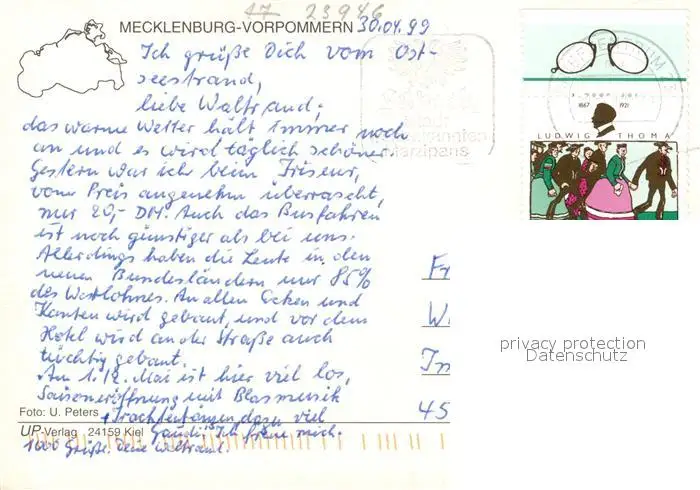 17 23946
MECKLENBURG-VORPOMMERN 30.04.99
Ich grüße Dich vom Ost-
seestrand,
liebe Waltraud,
das warme Wetter hält immer noch
an und es wird täglich schöner.
Gestern war ich beim Friseur,
vom Preis angenehm überrascht,
nur 20,- DM. Auch das Busfahren
ist noch günstiger als bei uns.
Allerdings haben die Leute in den
neuen Bundesländern nur 85%
des Westlohnes. An allen Ecken und
Kanten wird gebaut, und vor dem
Hotel wird an der Straße auch
tüchtig gebaut.
Am 1./2. Mai ist hier viel los,
Saisoneröffnung mit Blasmusik
+ Trachtentänzen, dazu viel
Gaudi. Ich freue mich.
1000 Grüße. Deine Waltraud.
Foto: U. Peters
UP-Verlag 24159 Kiel
Marzipans
1867 1921
LUDWIG THOMA
Fr
W
Im
45
privacy protection
Datenschutz